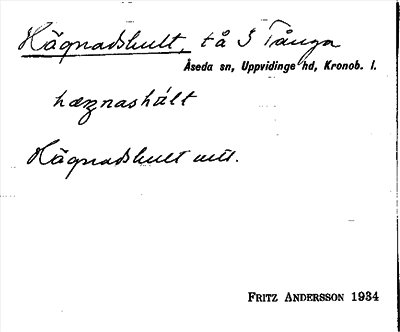 Hägnadshult, tå S Tånga
Åseda sn, Uppvidinge hd, Kronob. l.
hægnashúlt
Hägnadshult utt.
FRITZ ANDERSSON 1934